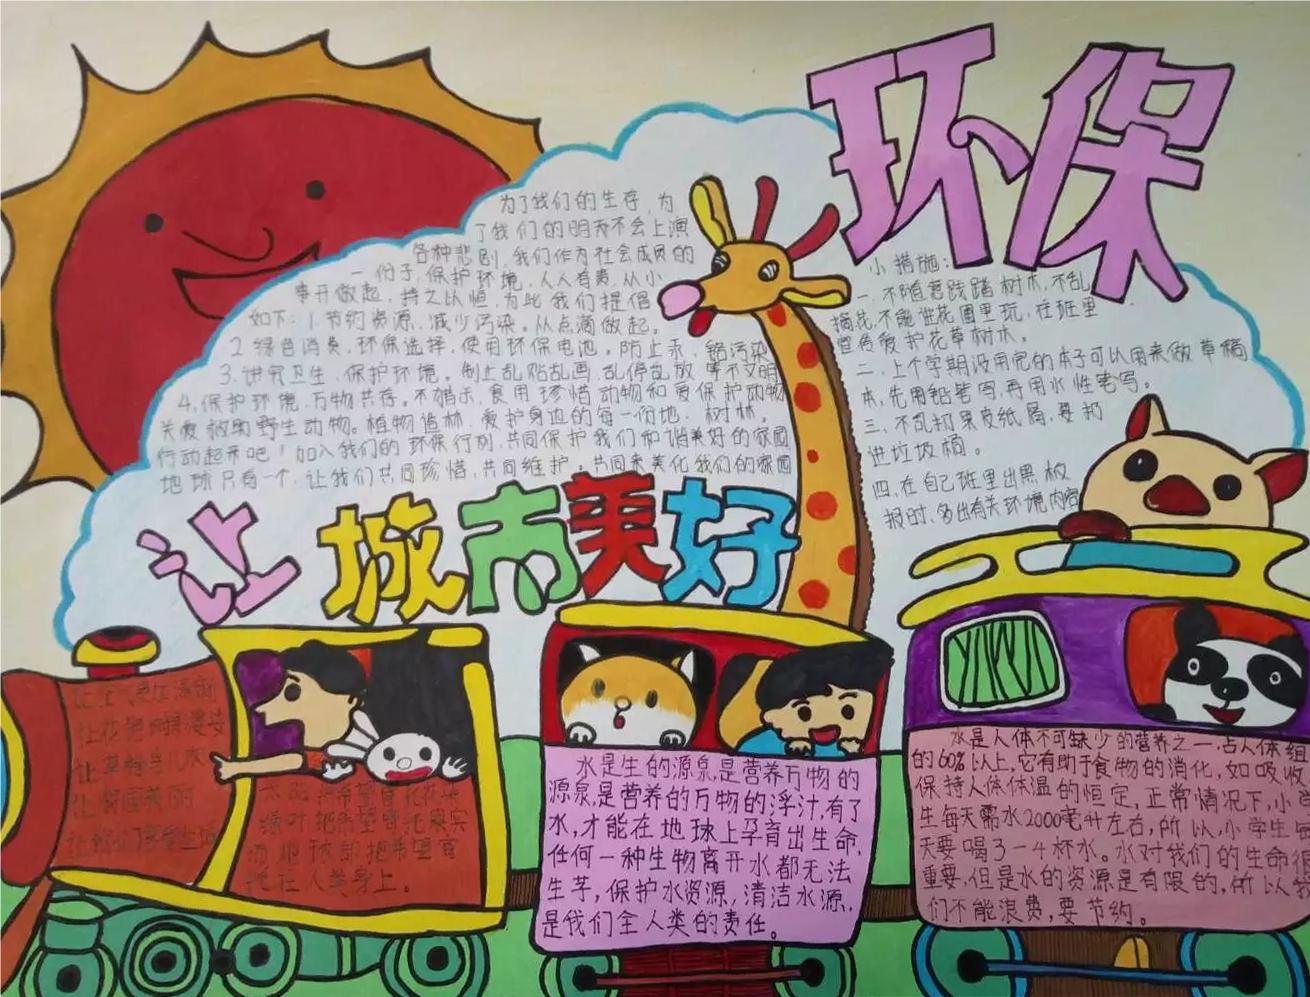 环保
为了我们的生存,为
了我们的明天不会上演
各种悲剧,我们作为社会成员的
一份子,保护环境,人人有责,从小
事开做起,持之以恒,为此我们提倡
如下:1.节约资源,减少污染。从点滴做起。
2 绿色消费,环保选择,使用环保电池。防止汞、铬污染
3.讲究卫生、保护环境。制止乱贴乱画,乱停乱放等不文明
4,保护环境,万物共存。不猎杀、食用珍惜动物和爱保护动物
关爱救助野生动物。植物造林,爱护身边的每一份地、树林,
行动起来吧!加入我们的环保行列,共同保护我们和谐美好的家园
地球只有一个,让我们共同珍惜,共同维护,共同来美化我们的家园
小措施:
一、不随意践踏树木,不乱
摘花,不能进花园里玩,在班里
宣传爱护花草树木。
二、上个学期没用完的本子可以用来做草稿
本,先用铅笔写,再用水性笔写。
三、不乱扔果皮纸屑,要扔
进垃圾桶。
四、在自己班里出黑板
报时,多出有关环境内容
让城市美好
绿叶把希望寄托果实
而地球却把希望寄
托在人类身上。
水是生的源泉,是营养万物的
源泉,是营养的万物的浮汁,有了
水,才能在地球上孕育出生命,
任何一种生物离开水都无法
生芋,保护水资源,清洁水源,
是我们全人类的责任。
水是人体不可缺少的营养之一,占人体组
的60%以上,它有助于食物的消化,如吸收
保持人体体温的恒定,正常情况下,小学
生每天需水2000毫升左右,所以,小学生每
天要喝3-4杯水。水对我们的生命很
重要,但是水的资源是有限的,所以我
们不能浪费,要节约。